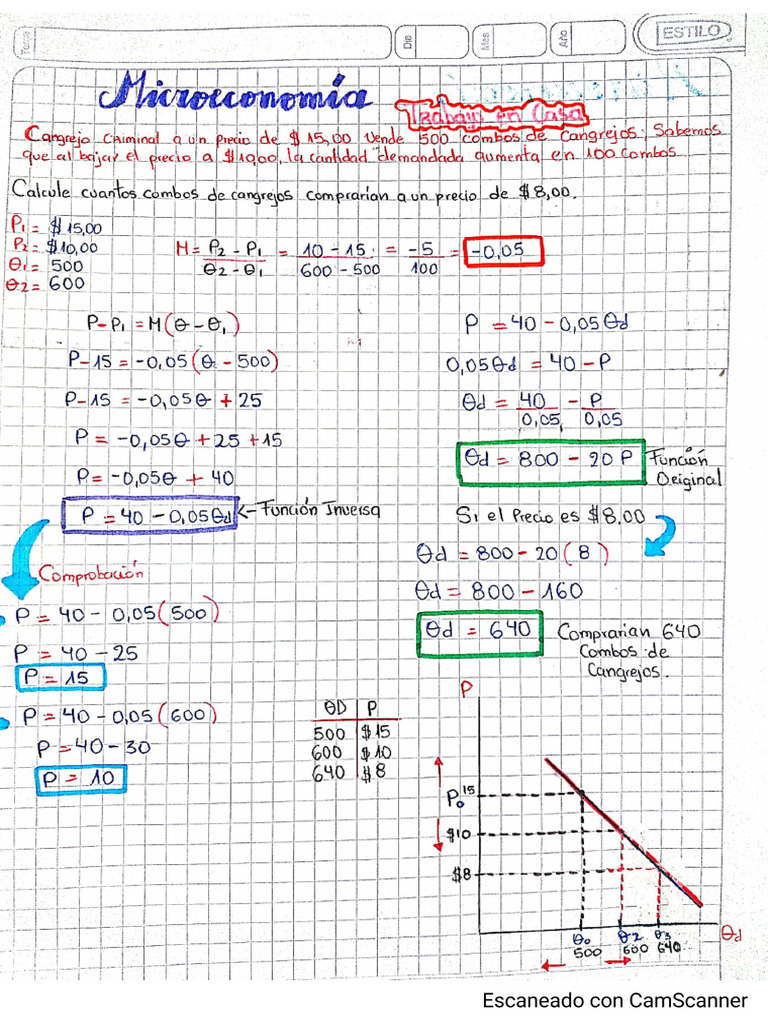 Tema
Dia
Mes
Año
ESTILO
Microeconomía
Trabajo en Casa
Cangrejo Criminal a un precio de $15,00 Vende 500 combos de Cangrejos. Sabemos
que al bajar el precio a $10,00, la cantidad demandada aumenta en 100 Combos
Calcule cuantos combos de cangrejos comprarian a un precio de $8,00.
P1 = $15,00
P2 = $10,00
θ1 = 500
θ2 = 600
M = P2 - P1 / θ2 - θ1 = 10 - 15 / 600 - 500 = -5 / 100 = -0,05
P - P1 = M(θ - θ1)
P - 15 = -0,05(θ - 500)
P - 15 = -0,05θ + 25
P = -0,05θ + 25 + 15
P = -0,05θ + 40
P = 40 - 0,05θd <- Función Inversa
P = 40 - 0,05θd
0,05θd = 40 - P
θd = 40 / 0,05 - P / 0,05
θd = 800 - 20 P Función
Original
Si el Precio es $8.00
θd = 800 - 20(8)
θd = 800 - 160
θd = 640 Comprarian 640
Combos de
Cangrejos.
Comprobación
P = 40 - 0,05(500)
P = 40 - 25
P = 15
P = 40 - 0,05(600)
P = 40 - 30
P = 10
θD P
500 $15
600 $10
640 $8
P
P0 15
$10
$8
θ0 θ2 θ3 θd
500 600 640
Escaneado con CamScanner